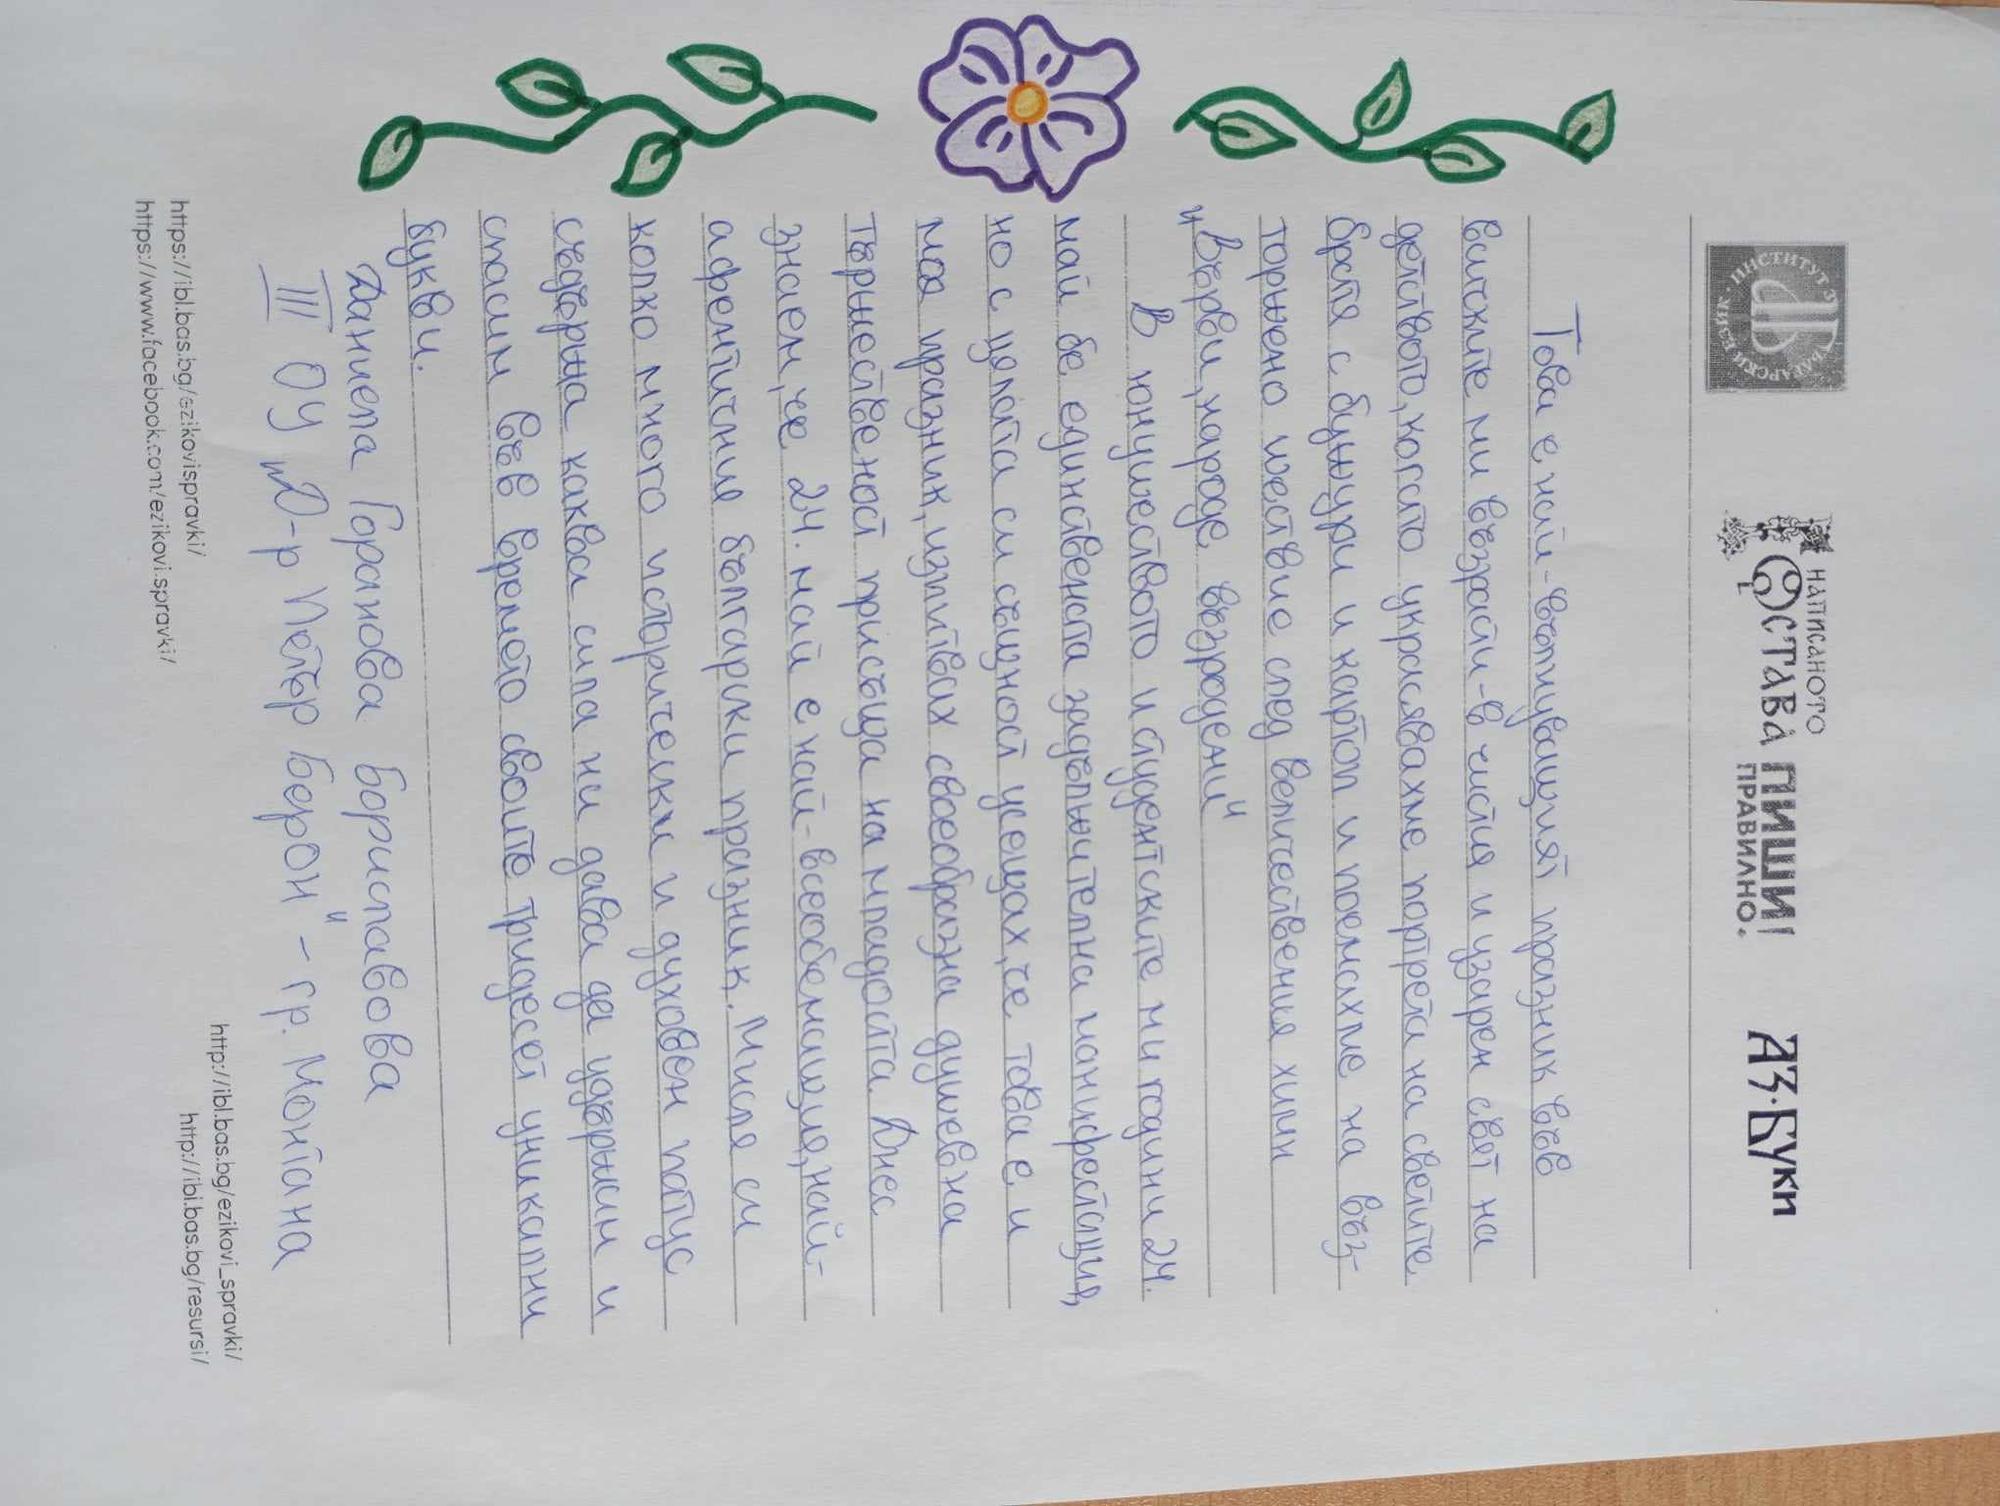 ИНСТИТУТ ЗА БЪЛГАРСКИ ЕЗИК
НАПИСАНОТО
ОСТАВА
ПИШИ!
ПРАВИЛНО.
АЗ·БУКИ
Това е най-вълнуващият празник във
всичките ми възрасти - в чистия и узарен свят на
детството, когато украсявахме портрета на светите
братя с божури и картон и поемахме на въз-
торжено шествие след величествения химн
„Върви, народе възродени"
В юношеството и студентските ми години 24.
май бе единствената задължителна манифестация,
но с цялата си същност усещах, че това е и
моя празник, изпитвах своеобразна душевна
тържественост присъща на младостта. Днес
знаем, че 24. май е най-всеобемащия, най-
афентичния български празник. Мисля си
колко много исторически и духовен патус
съдържа каква сила ни дава да удържим и
спасим във времето своите тридесет уникални
букви.
Даниела Горанова Бориславова
III ОУ „Д-р Петър Берон" - гр. Монтана
https://ibl.bas.bg/ezikovispravki/
https://www.facebook.com/ezikovi.spravki/
http://ibl.bas.bg/ezikovi_spravki/
http://ibl.bas.bg/resursi/